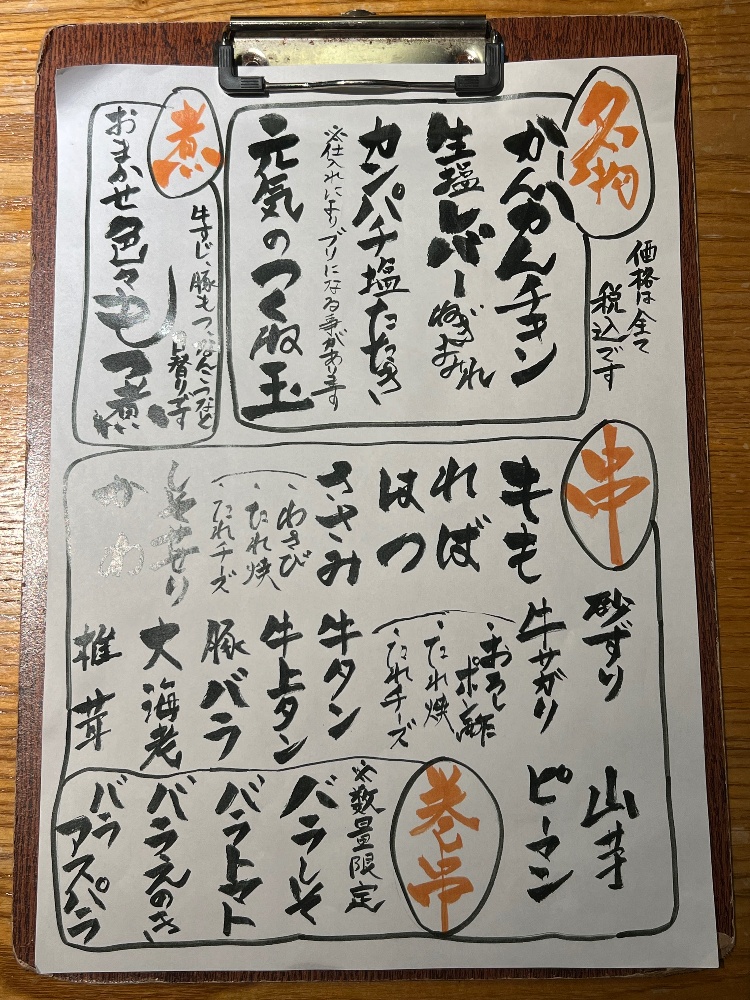 名物
価格は全て
税込です
かんかんチキン
生塩レバー
ねぎまみれ
カンパチ塩たたき
※仕入れによりブリになる事があります
元気のつく肝玉
煮
おまかせ色々もつ煮
牛すじ、豚もつ
日替りです
串
もも
ればー
はつ
ささみ
・わさび
・たれ焼
・たれチーズ
しそせせり
かわ
砂ずり
牛サガリ
・おろしポン酢
・たれ焼
・たれチーズ
牛タン
牛上タン
豚バラ
大海老
椎茸
山芋
ピーマン
巻串
※数量限定
バラしそ
バラトマト
バラえのき
バラアスパラ